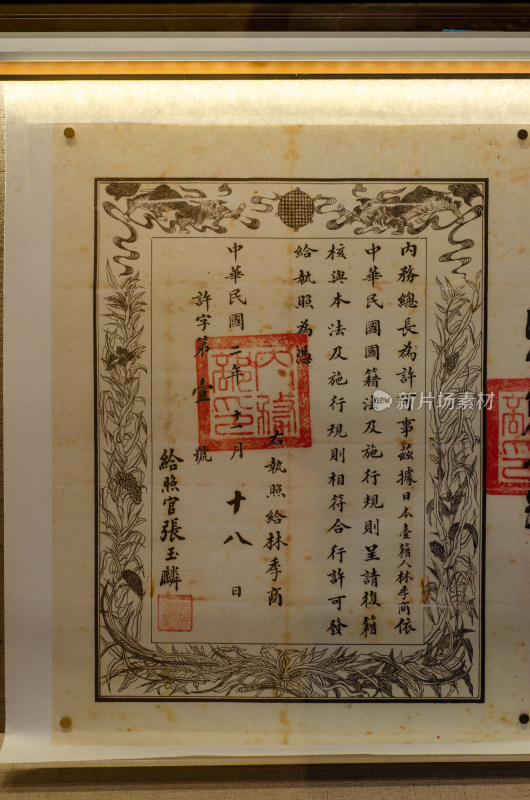 內務總長為許可事茲據日本臺籍人林季商依
中華民國國籍法及施行規則呈請復籍
核與本法及施行規則相符合行許可發
給執照為憑
右執照給林季商
中華民國二年十一月十八日
許字第壹號
給照官張玉麟
新片场素材